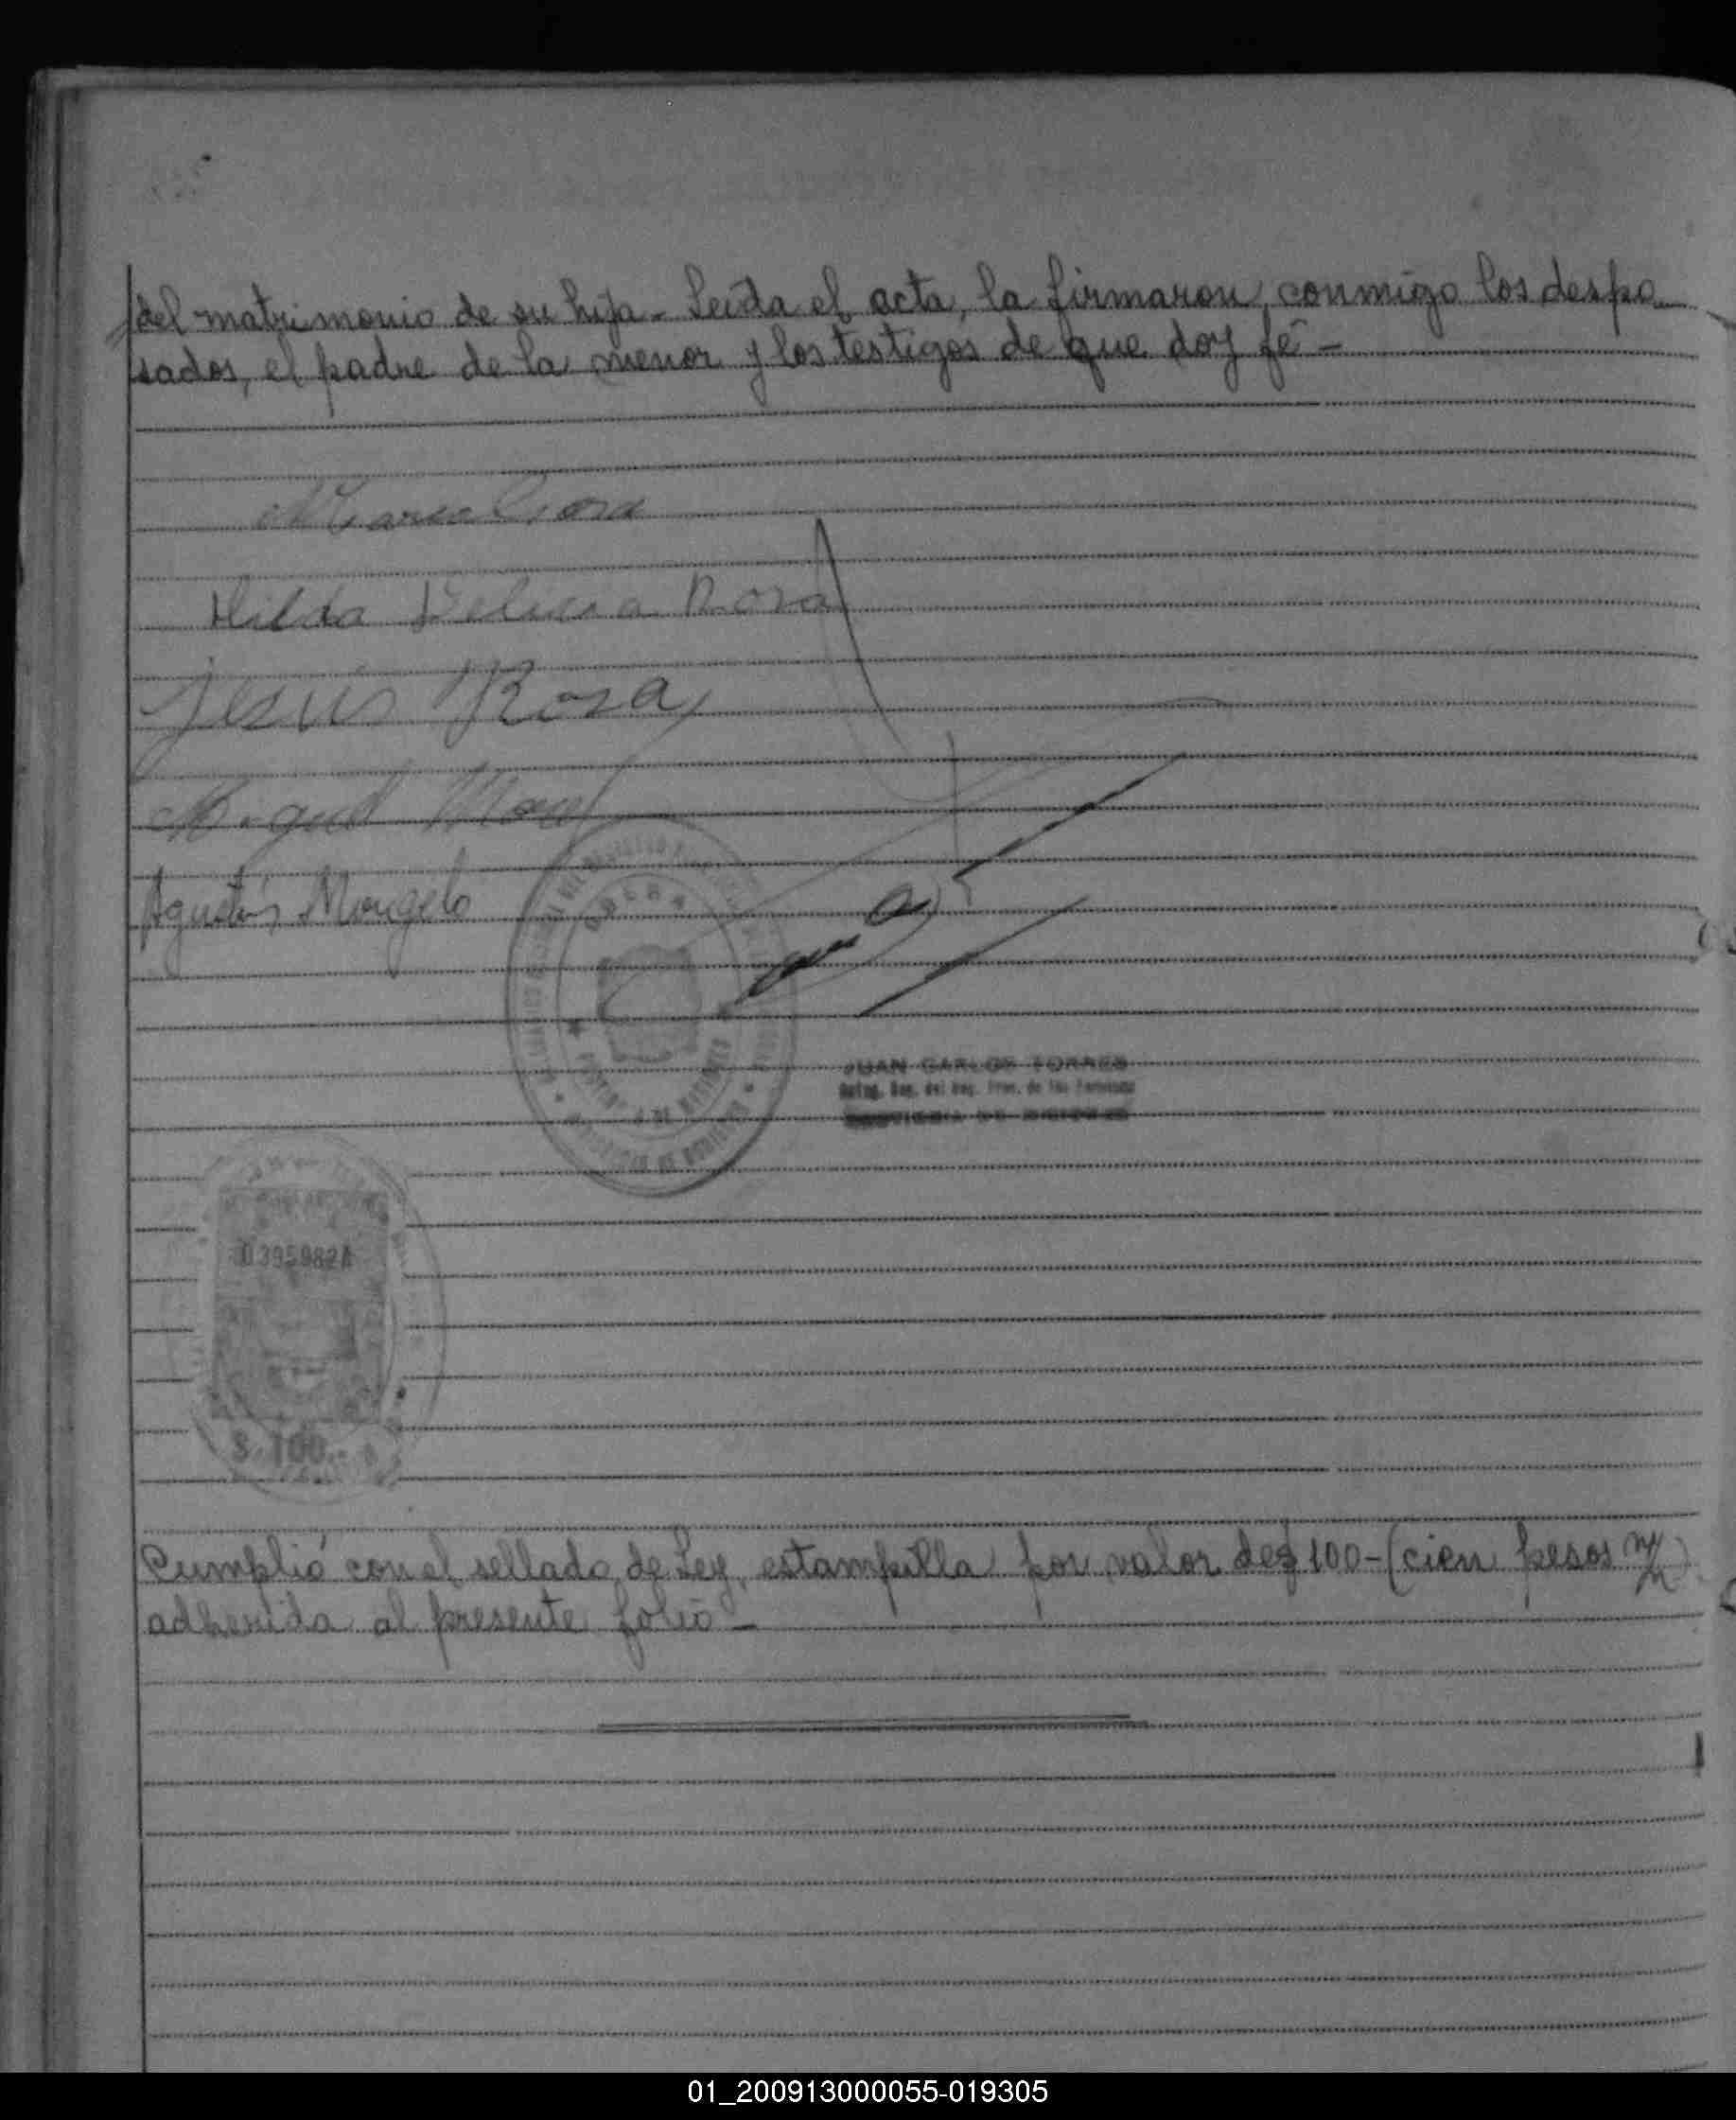 del matrimonio de su hija - Leída el acta, la firmaron conmigo los despo
sados, el padre de la menor y los testigos de que doy fé -
Hilda Rosa
Jesus Rosa
Miguel
Agustín Mongelo
JUAN CARLOS TORRES
03959824
$ 100.-
Cumplió con el sellado de Ley, estampilla por valor de $ 100 - (cien pesos m/n)
adherida al presente folio -
01_200913000055-019305